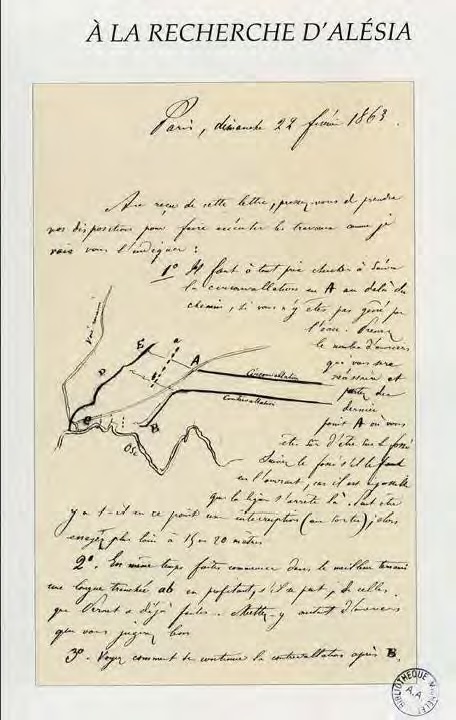 À LA RECHERCHE D'ALÉSIA
Paris, dimanche 22 février 1863.
Au reçu de cette lettre, pressez-vous de prendre
vos dispositions pour faire exécuter les travaux comme je
vais vous l'indiquer :
1º Il faut à tout prix chercher à suivre
la circonvallation en A au delà du
chemin, si vous n'y êtes pas gêné par
l'eau. Prenez
le nombre d'ouvriers
qui vous sera
nécessaire et
partez du
dernier
point A où vous
êtes sûr d'être sur le fossé
Suivez le fossé s'il le faut
en l'ouvrant, car il est
que la ligne s'arrête là. Peut être
y a-t-il en ce point une interruption (une porte); alors
essayez plus loin à 15 ou 20 mètres
2º. En même temps faites commencer dans le meilleur terrain
une longue tranchée ab en profitant, s'il se peut, de celles
que a déjà faites. Mettez-y autant d'ouvriers
que vous jugerez bon
3º. Voyez comment se continue la contrevallation après B.
E
a
A
b
D
C
B
Circonvallation
Contrevallation
Ose
BIBLIOTHÈQUE
A.A